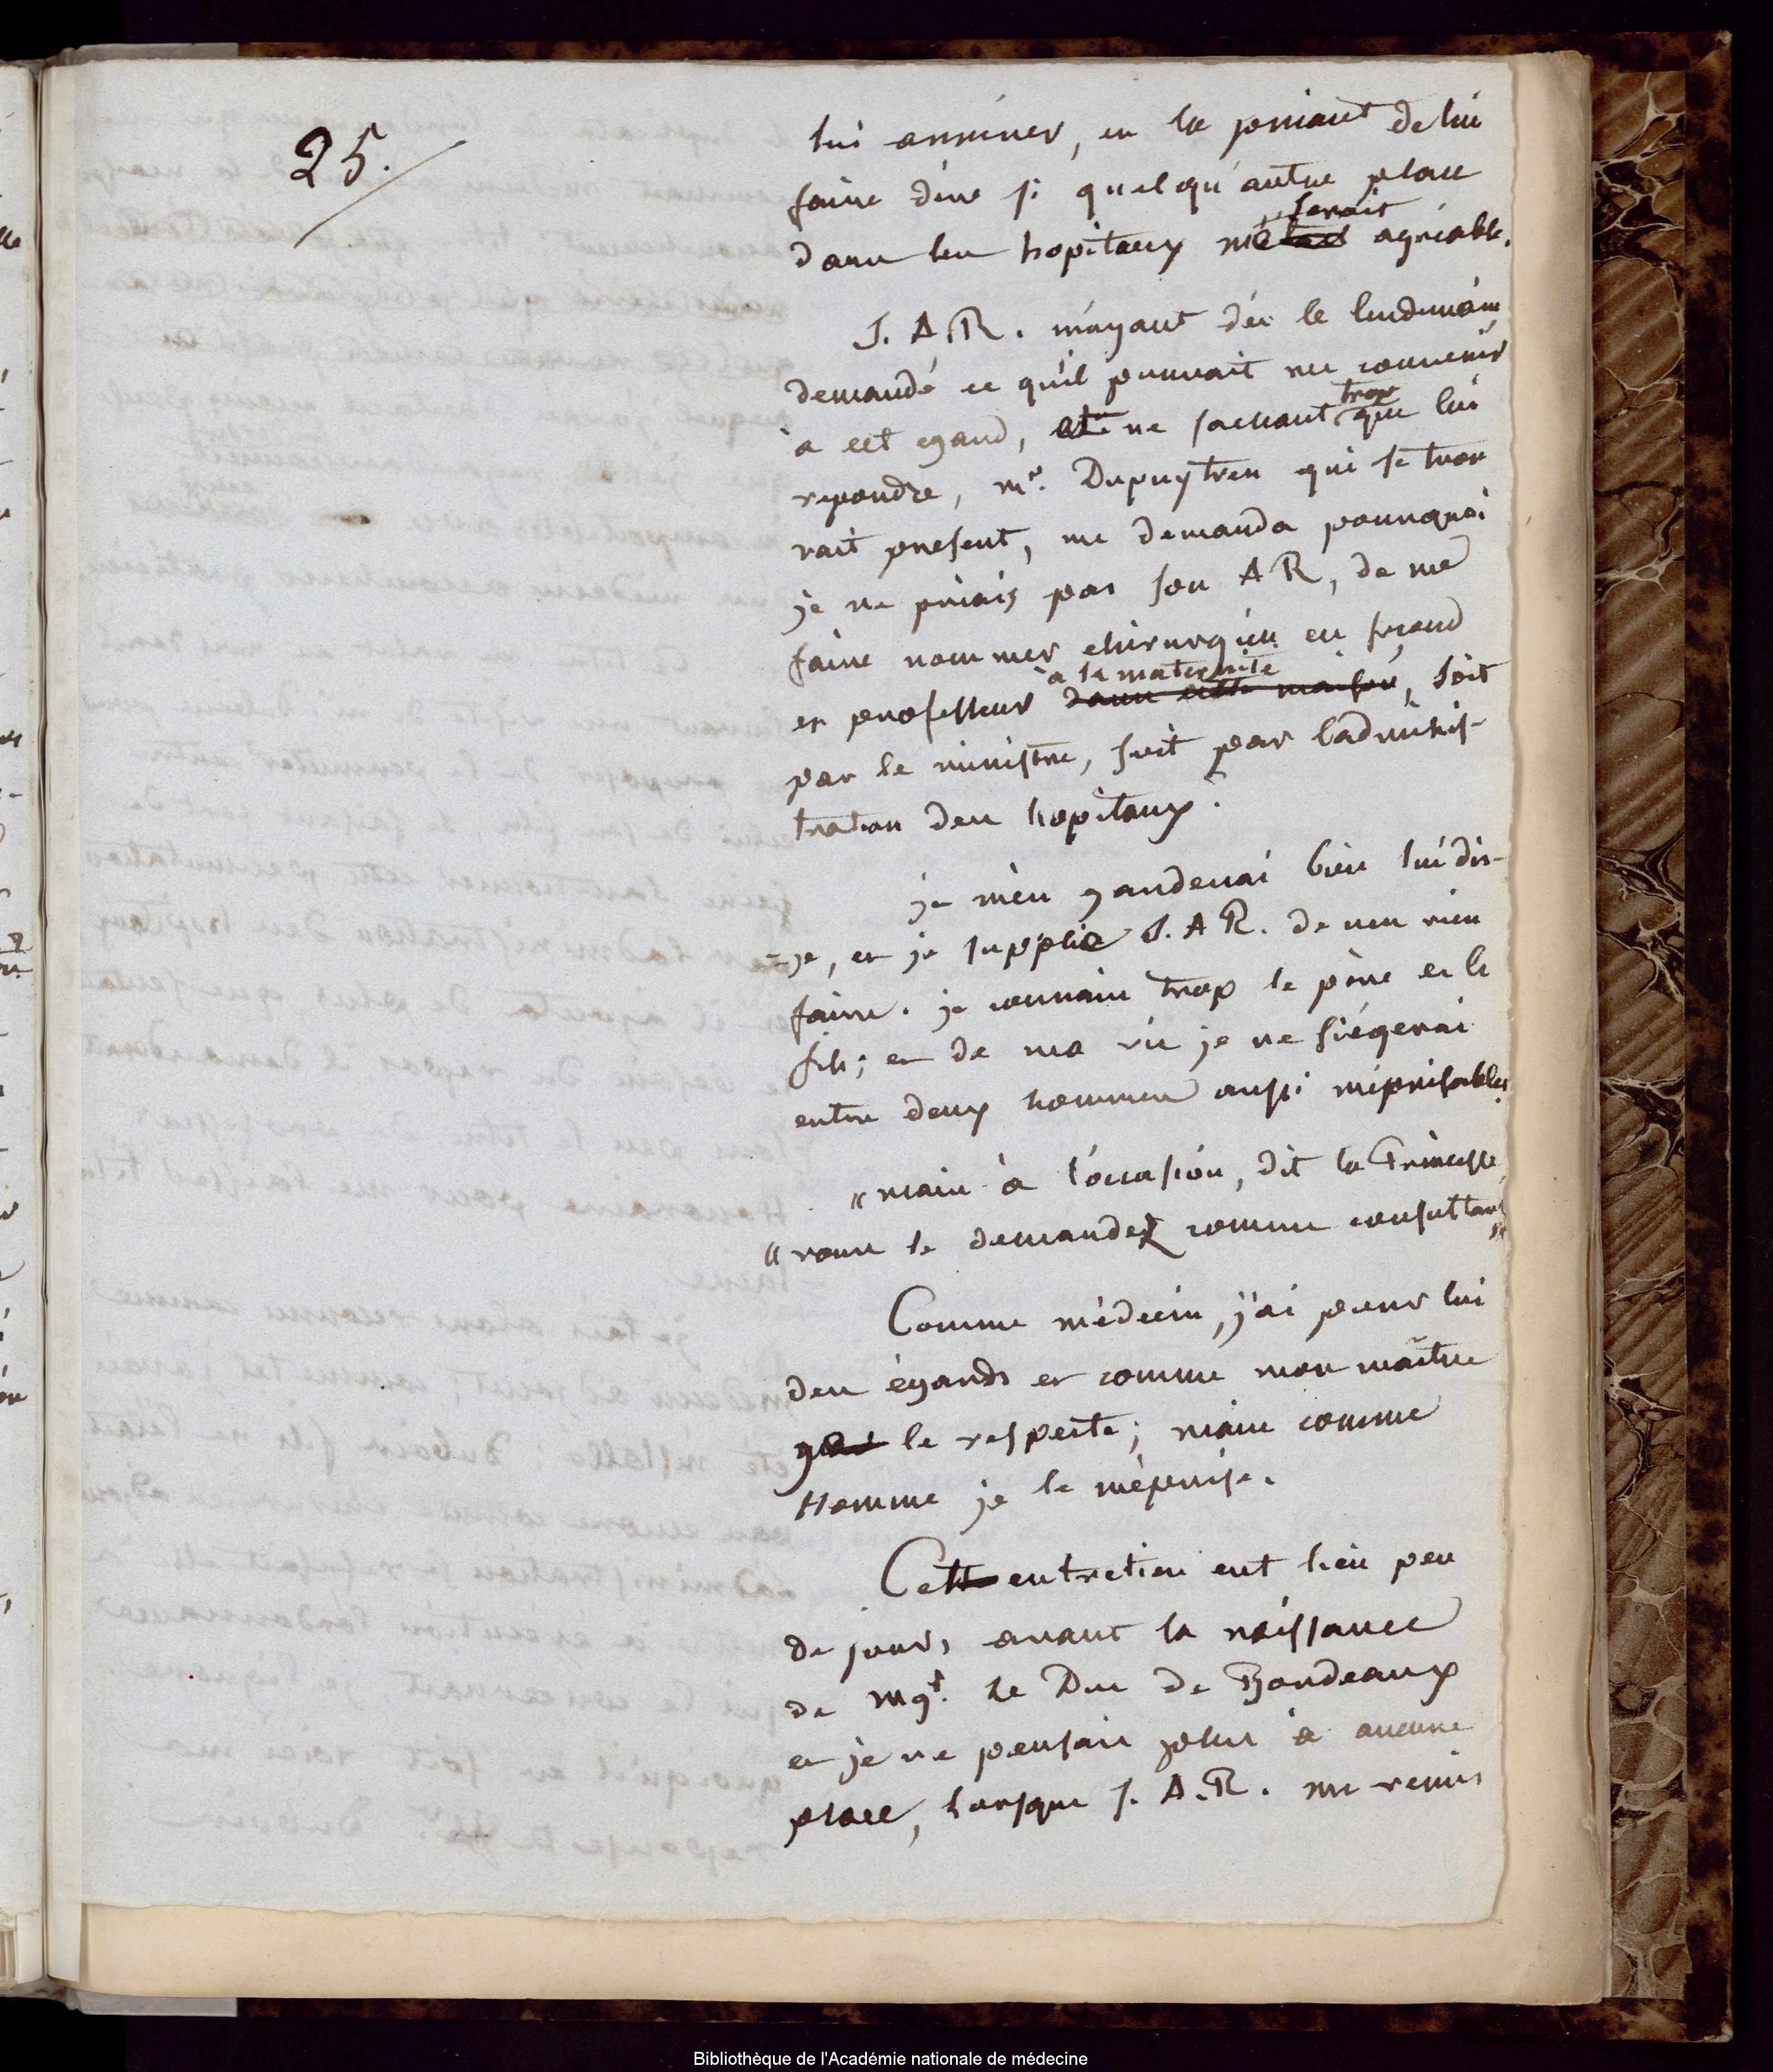 25.
lui arriver, en la priant de lui
faire dire si quelqu'autre place
serait
dans les hopitaux me agréable.
S. A. R. m'ayant dès le lendemain
demandé ce qu'il pouvait me convenir
trop
à cet egard, et ne sachant que lui
repondre, mr. Dupuytren qui se trou
vait present, me demanda pourquoi
je ne priais pas son AR, de me
faire nommer chirurgien en second
à la maternité
et professeur dans cette maison, soit
par le ministre, soit par l'adminis-
tration des hopitaux?
je m'en garderai bien lui dis-
=je, et je supplie S. A R. de n'en rien
faire. je connais trop le père et le
fils; et de ma vie je ne siégerai
entre deux hommes aussi méprisables.
"mais à l'occasion, dit la Princesse,
"vous le demandez comme consultant"
Comme médecin, j'ai pour lui
des égards et comme mon maître
je le respecte; mais comme
Homme je le méprise.
Cett entretien eut lieu peu
de jours avant la naissance
de mgr. le Duc de Bordeaux
et je ne pensais plus à aucune
place, lorsque S. A. R. me remis
Bibliothèque de l'Académie nationale de médecine